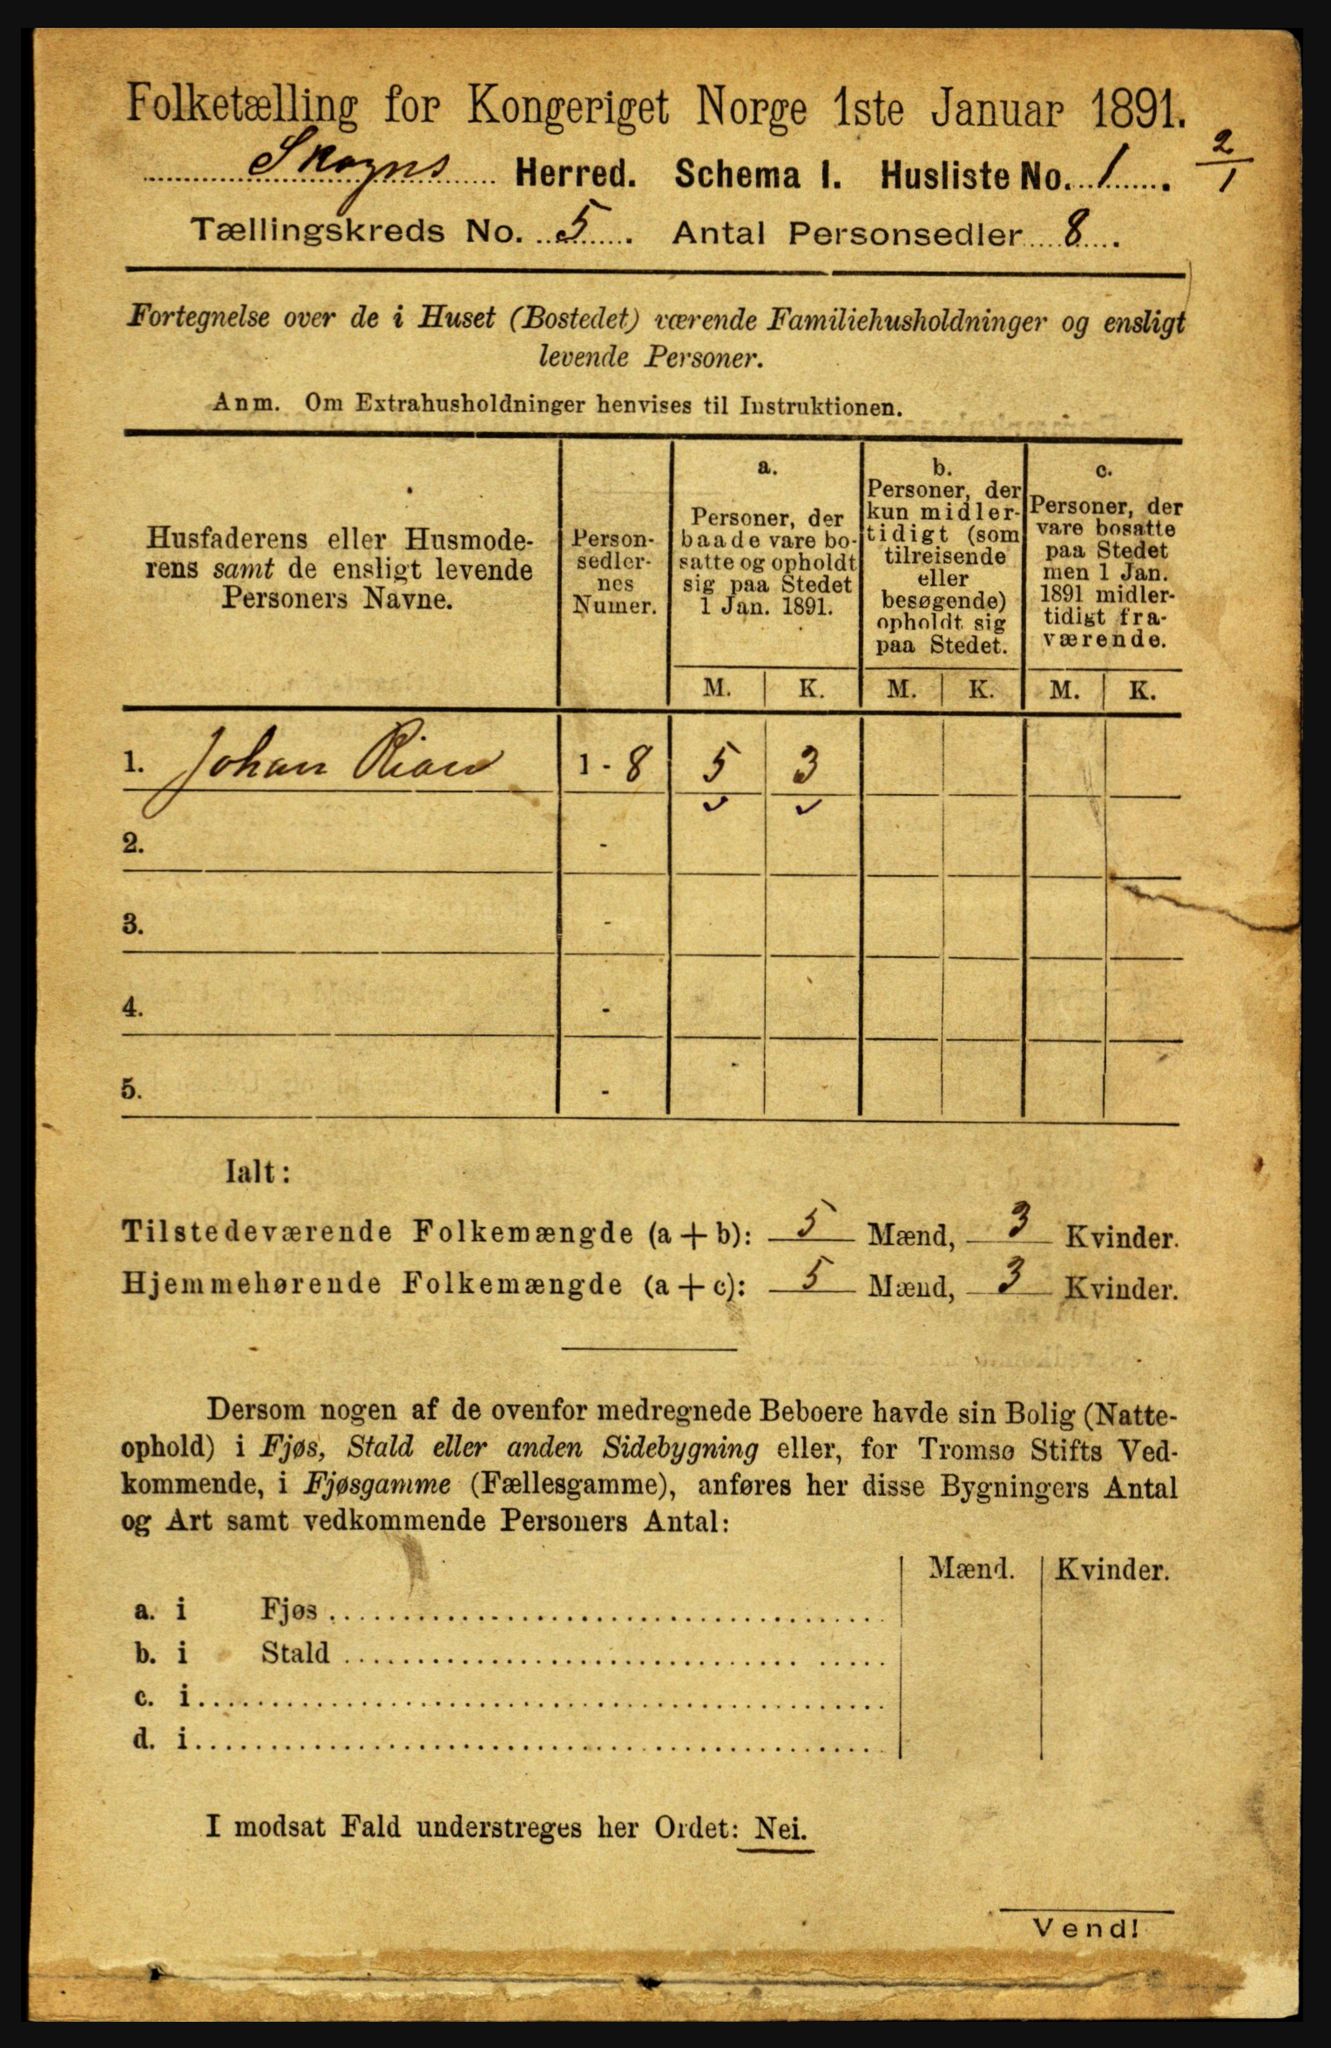 Folketælling for Kongeriget Norge 1ste Januar 1891.
Skogns Herred. Schema I. Husliste No. 1. 2/1
Tællingskreds No. 5. Antal Personsedler 8.
Fortegnelse over de i Huset (Bostedet) værende Familiehusholdninger og ensligt
levende Personer.
Anm. Om Extrahusholdninger henvises til Instruktionen.
Husfaderens eller Husmode-
rens samt de ensligt levende
Personers Navne.
Person-
sedler-
nes
Numer.
a.
Personer, der
baade vare bo-
satte og opholdt
sig paa Stedet
1 Jan. 1891.
b.
Personer, der
kun midler-
tidigt (som
tilreisende
eller
besøgende)
opholdt sig
paa Stedet.
c.
Personer, der
vare bosatte
paa Stedet
men 1 Jan.
1891 midler-
tidigt fra-
værende.
M. K. M. K. M. K.
1. Johan Rian 1 - 8 5 3
2. -
3. -
4. -
5. -
Ialt:
Tilstedeværende Folkemængde (a + b): 5 Mænd, 3 Kvinder.
Hjemmehørende Folkemængde (a + c): 5 Mænd, 3 Kvinder.
Dersom nogen af de ovenfor medregnede Beboere havde sin Bolig (Natte-
ophold) i Fjøs, Stald eller anden Sidebygning eller, for Tromsø Stifts Ved-
kommende, i Fjøsgamme (Fællesgamme), anføres her disse Bygningers Antal
og Art samt vedkommende Personers Antal:
Mænd. Kvinder.
a. i Fjøs
b. i Stald
c. i
d. i
I modsat Fald understreges her Ordet: Nei.
Vend!